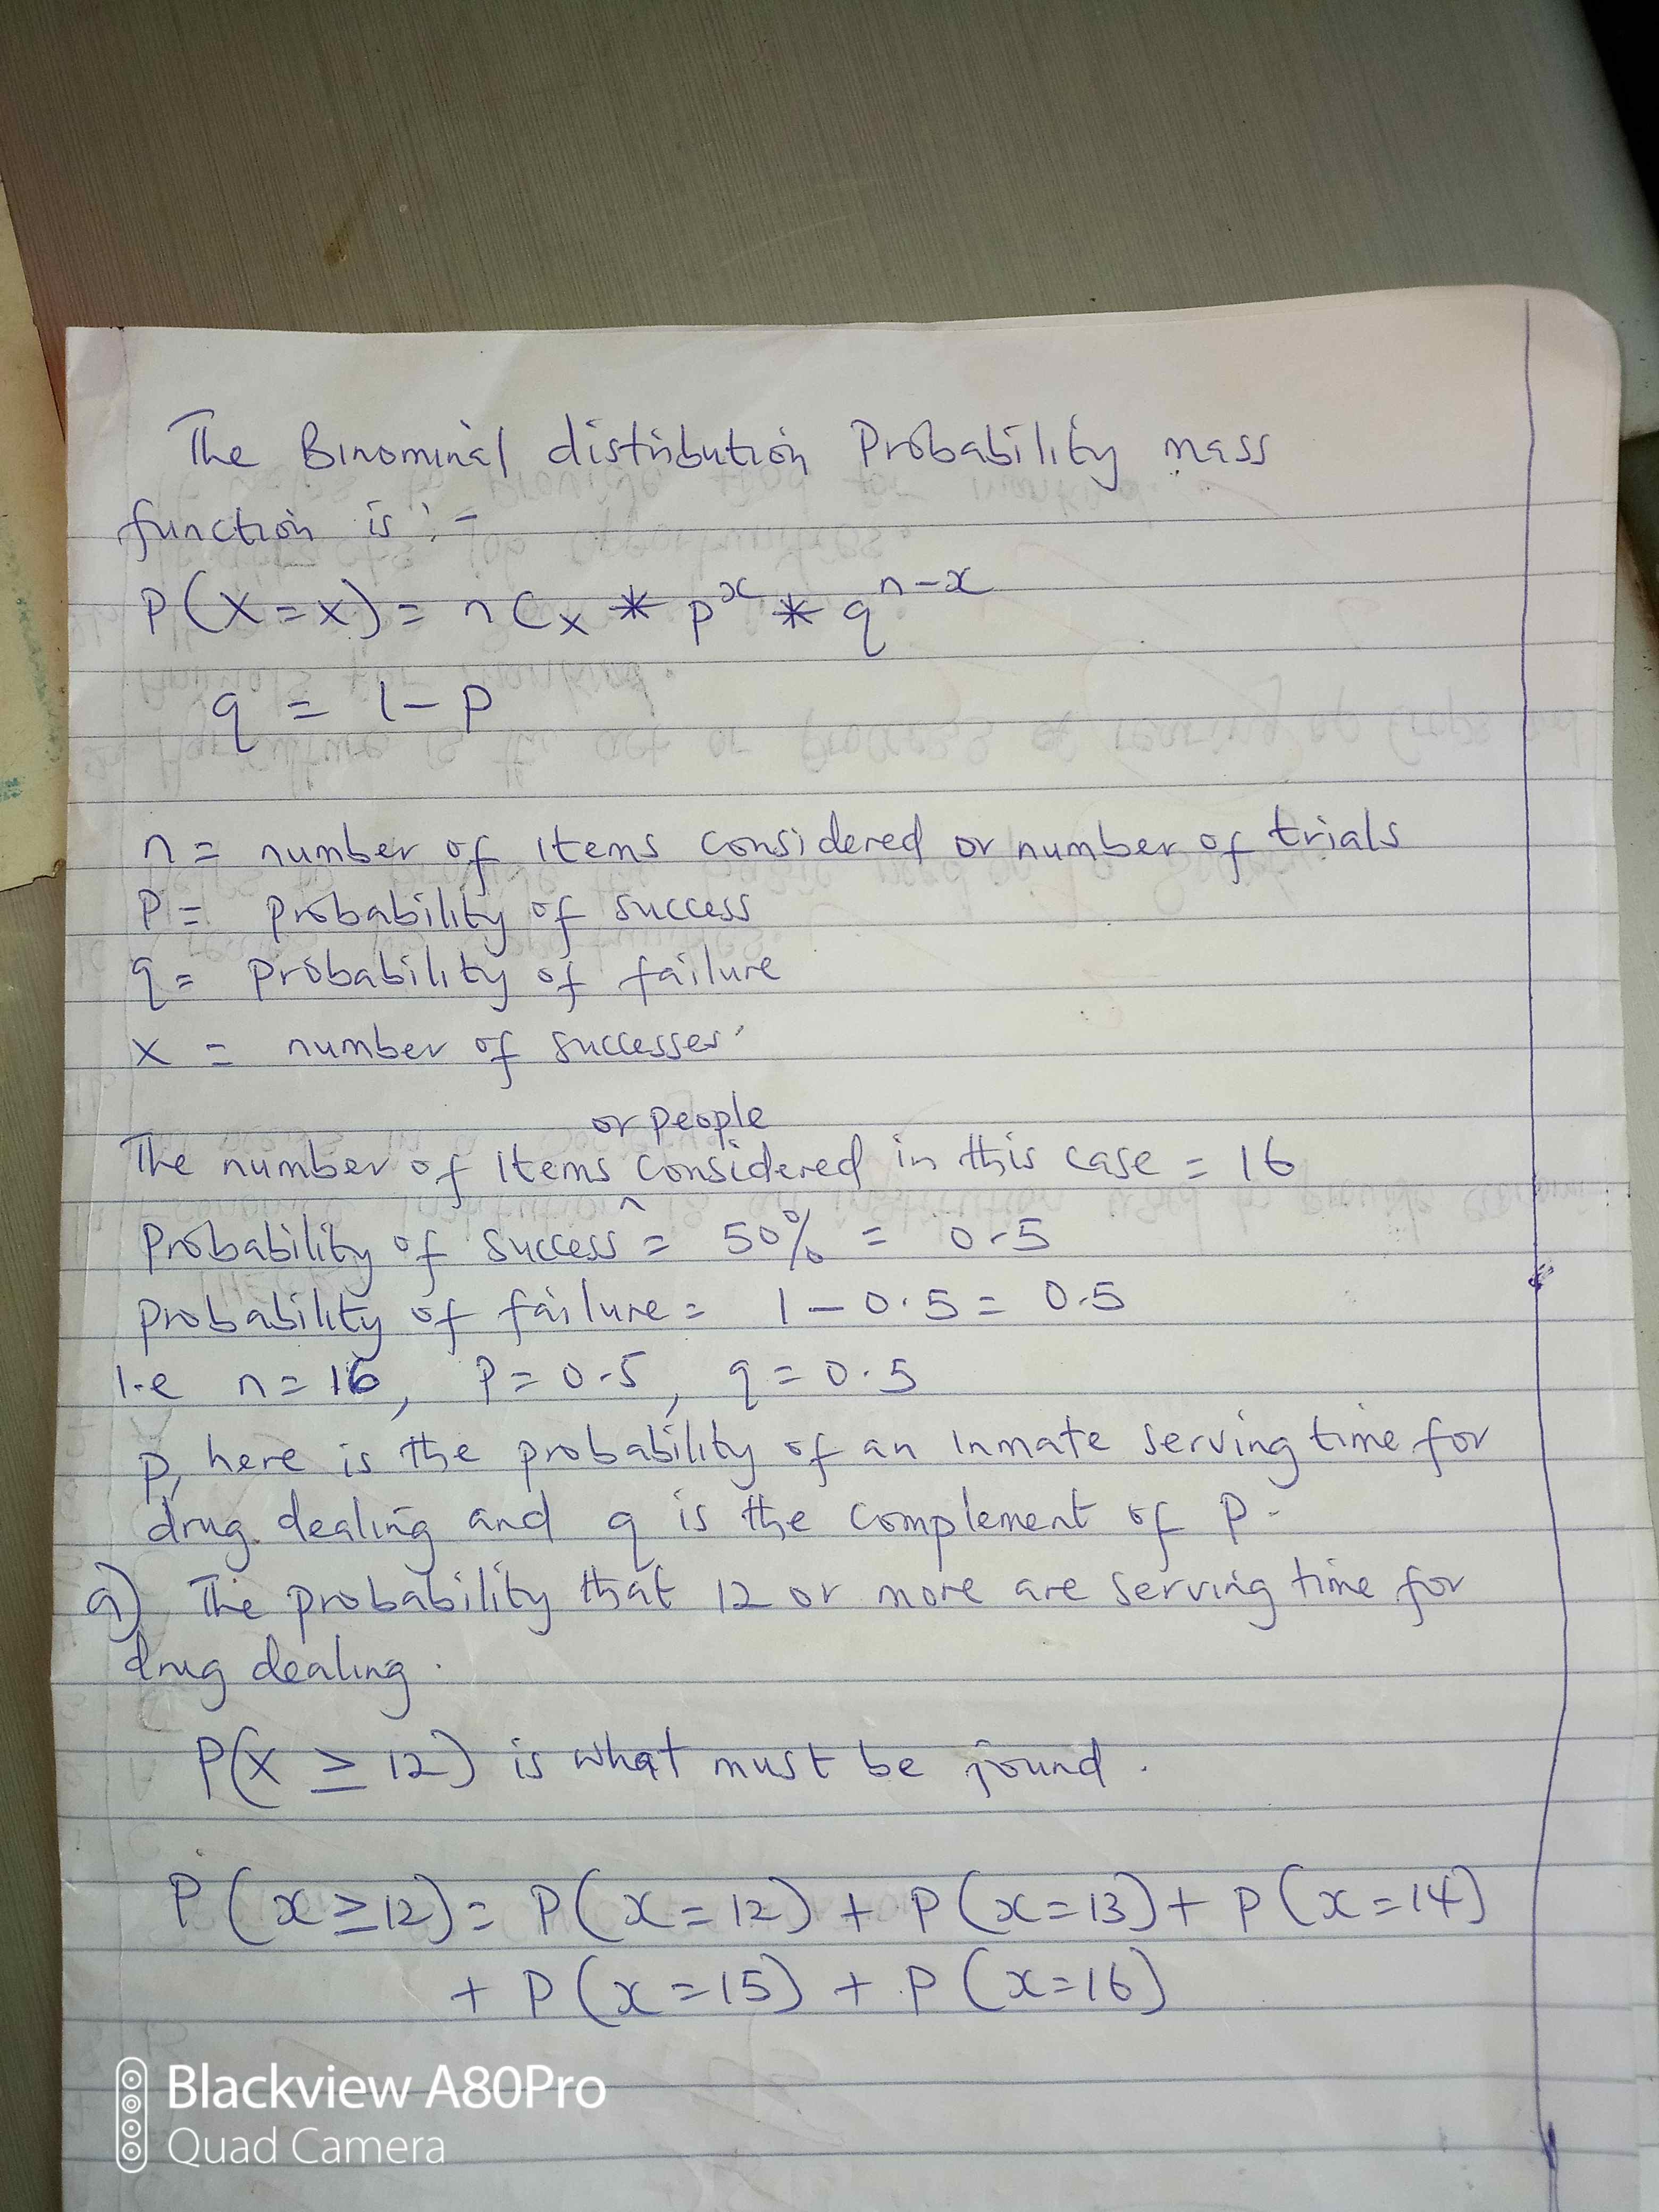 The Binominal distribution Probability mass
function is :-
P(X=x) = nCx * p^x * q^n-x
q = 1-P
n = number of items considered or number of trials
P = probability of success
q = probability of failure
x = number of successes
or people
The number of items considered in this case = 16
Probability of success = 50% = 0.5
probability of failure = 1-0.5 = 0.5
I.e n=16, P=0.5, q=0.5
p, here is the probability of an inmate serving time for
drug dealing and q is the complement of P.
a) The probability that 12 or more are serving time for
drug dealing.
P(x ≥ 12) is what must be found.
P(x≥12) = P(x=12) + P(x=13) + P(x=14)
+ P(x=15) + P(x=16)
Blackview A80Pro
Quad Camera